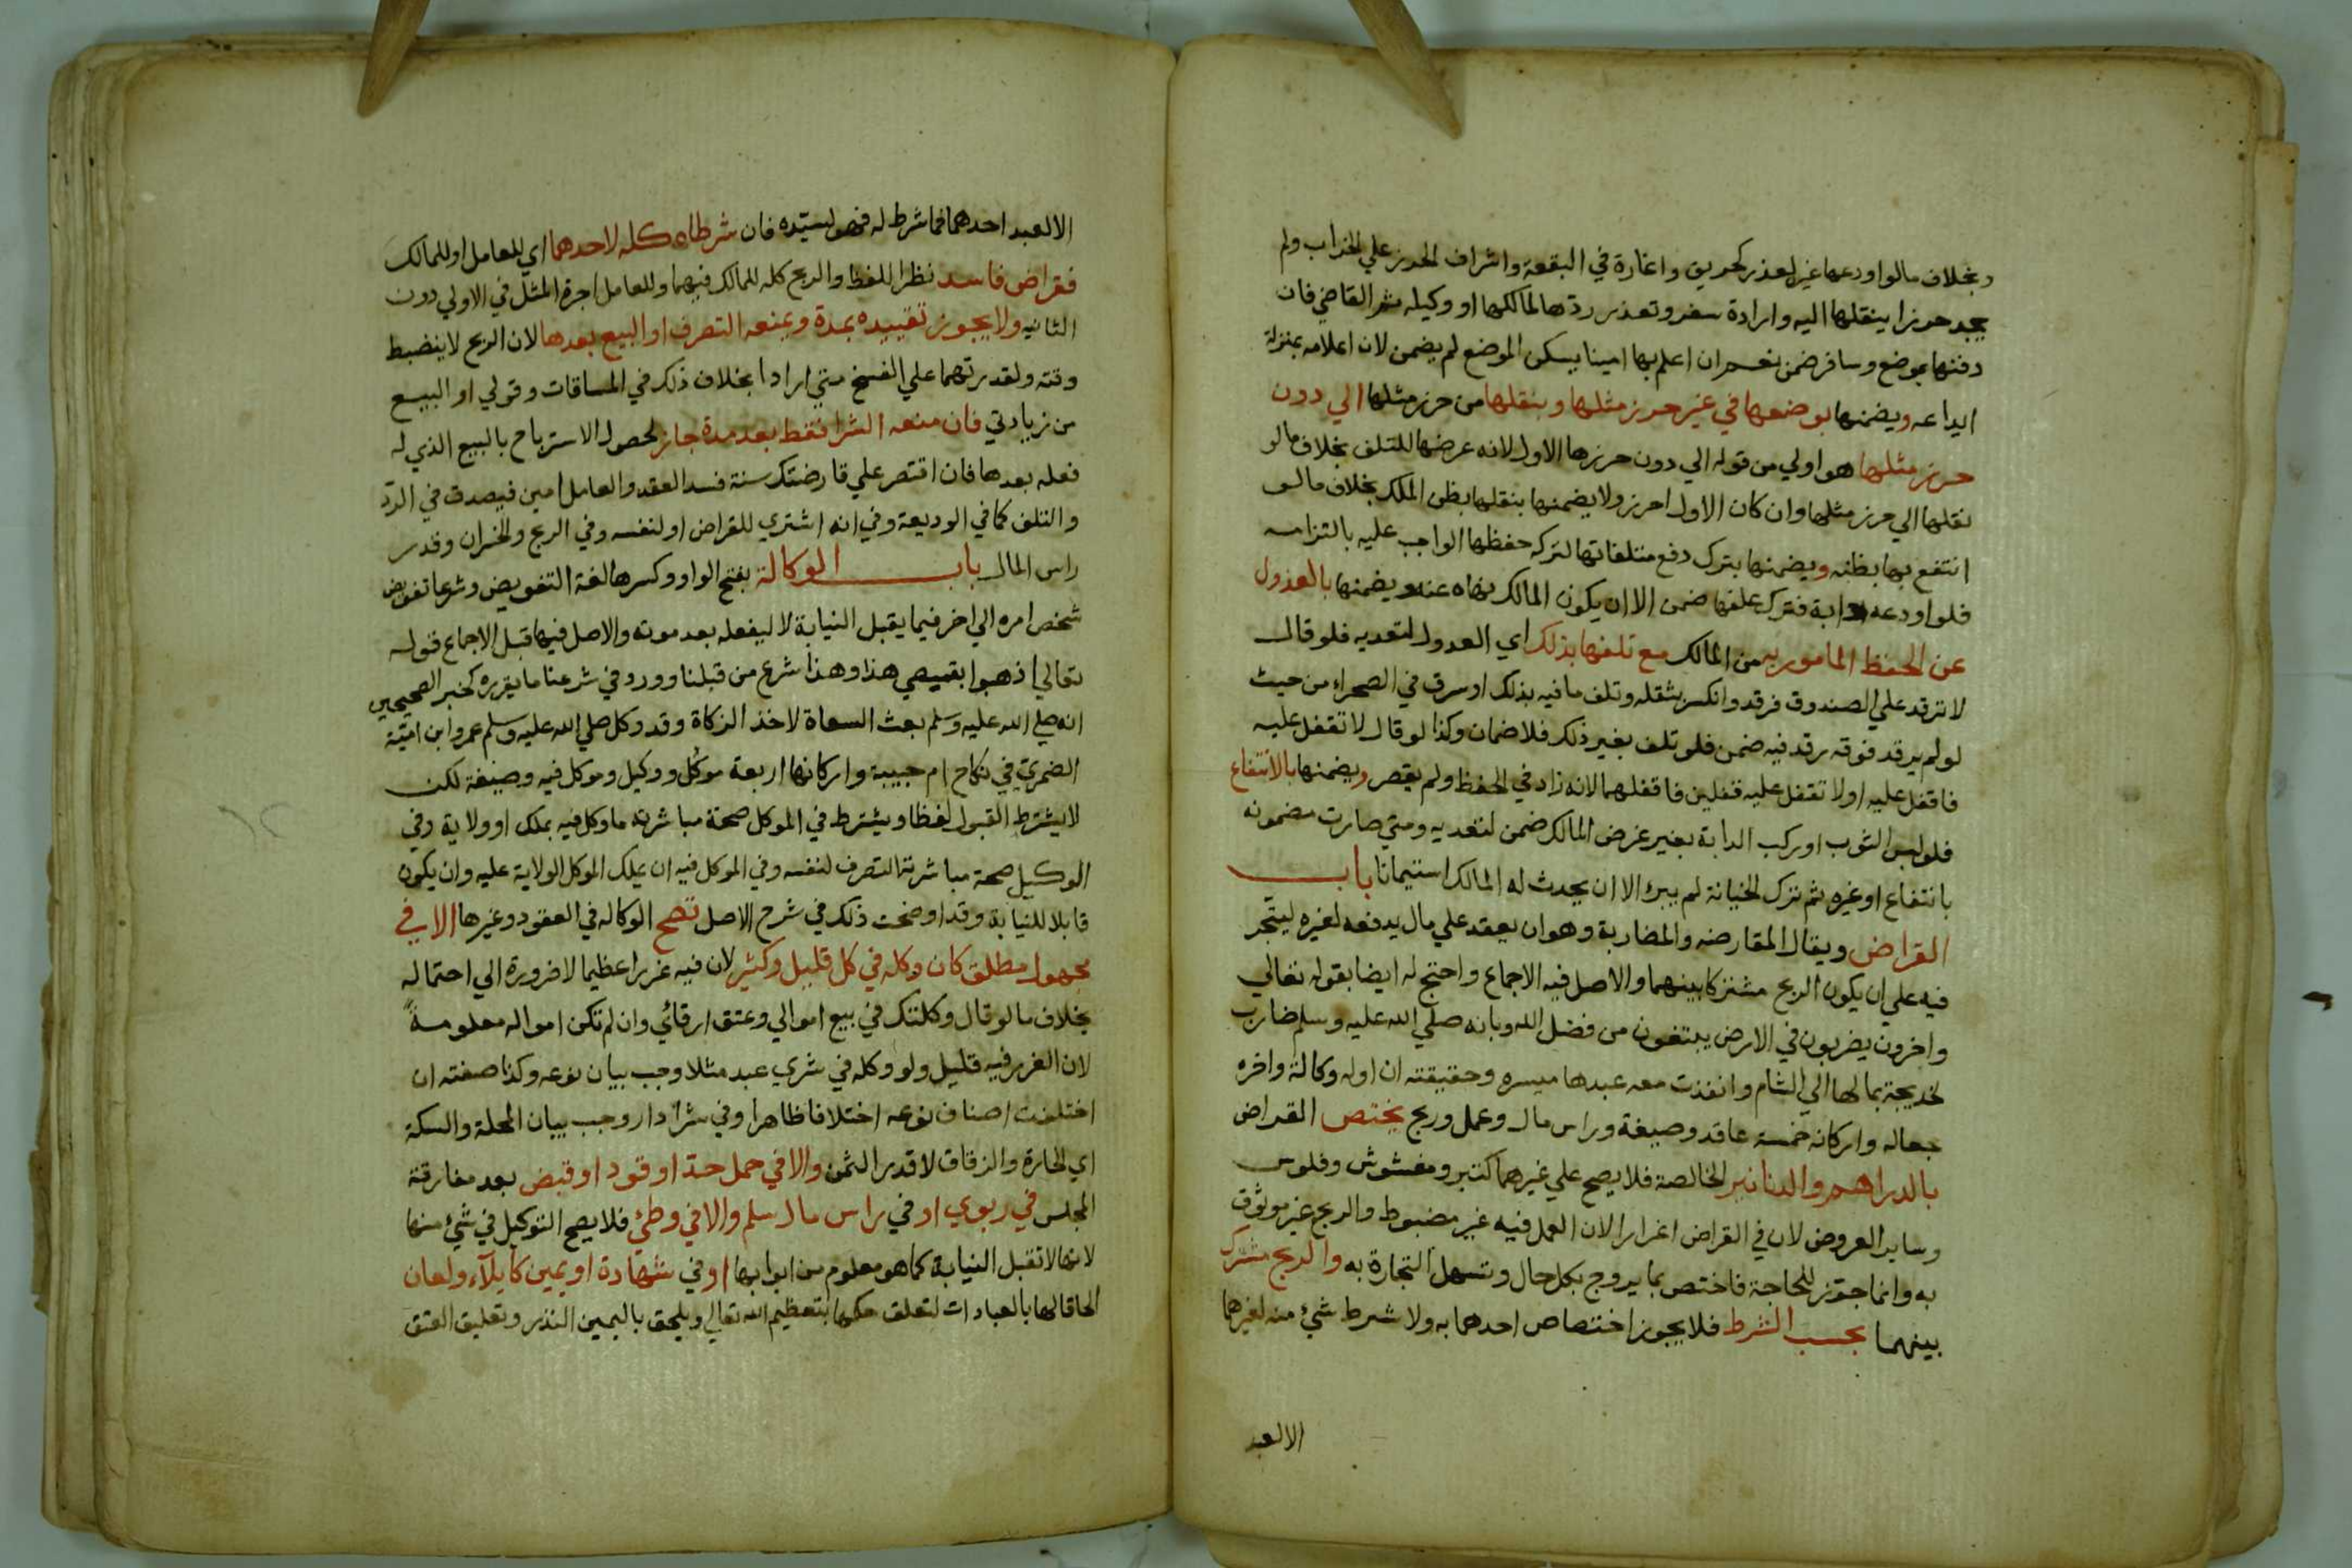 وبخلاف مالو اودعها غيره لعذر كحريق واغارة في البقعة واشراف الحرز علي الخراب ولم
يجد حرزا ينقلها اليه وارادة سفر وتعذر ردها لمالكها او وكيله ثم القاضي فان
دفنها بموضع وسافر ضمن نعم ان اعلم بها امينا يسكن الموضع لم يضمن لان اعلامه بمنزلة
ايداعه ويضمنها بوضعها في غير حرز مثلها وبنقلها من حرز مثلها الي دون
حرز مثلها هو اولي من قوله الي دون حرزها الاول لانه عرضها للتلف بخلاف مالو
نقلها الي حرز مثلها وان كان الاول احرز ولا يضمنها بنقلها بظن الملك بخلاف مالو
انتفع بها بظنه ويضمنها بترك دفع متلفاتها لتركه حفظها الواجب عليه بالتزامه
فلو اودعه دابة فترك علفها ضمن الا ان يكون المالك نهاه عنه ويضمنها بالعدول
عن الحفظ المامور به من المالك مع تلفها بذلك اي العدول لتعديه فلو قال
لا ترقد علي الصندوق فرقد وانكسر بثقله وتلف ما فيه بذلك او سرق في الصحراء من حيث
لو لم يرقد فوقه رقد فيه ضمن فلو تلف بغير ذلك فلا ضمان وكذا لو قال لا تقفل عليه
فاقفل عليه او لا تقفل عليه قفلين فاقفلهما لانه زاد في الحفظ ولم يقصر ويضمنها بالانتفاع
فلو لبس الثوب او ركب الدابة بغير غرض المالك ضمن لتعديه ومتي صارت مضمونه
بانتفاع او غيره ثم ترك الخيانة لم يبرا الا ان يحدث له المالك استيمانا باب
القراض ويقال المقارضه والمضاربة وهو ان يعقد علي مال يدفعه لغيره ليتجر
فيه علي ان يكون الربح مشتركا بينهما والاصل فيه الاجماع واحتج له ايضا بقوله تعالي
واخرون يضربون في الارض يبتغون من فضل الله وبانه صلي الله عليه وسلم ضارب
لخديجة بمالها الي الشام وانفذت معه عبدها ميسره وحقيقته ان اوله وكالة واخره
جعاله واركانه خمسة عاقد وصيغة وراس مال وعمل وربح يختص القراض
بالدراهم والدنانير الخالصة فلا يصح علي غيرهما كتبر ومغشوش وفلوس
وساير العروض لان في القراض اغرارا لان العمل فيه غير مضبوط والربح غير موثوق
به وانما جوز للحاجة فاختص بما يروج بكل حال وتسهل التجارة به والربح مشترك
بينهما بحسب الشرط فلا يجوز اختصاص احدهما به ولا شرط شيء منه لغيرهما
الا لعبد
الا لعبد احدهما فما شرط له فهو لسيده فان شرطاه كله لاحدهما اي للعامل او للمالك
فقراض فاسد نظرا للفظ والربح كله للمالك فيهما وللعامل اجرة المثل في الاولي دون
الثانيه ولا يجوز تقييده بمدة ويمنعه التصرف او البيع بعدها لان الربح لا ينضبط
وقته ولقدرتهما علي الفسخ متي ارادا بخلاف ذلك في المساقات وقولي او البيع
من زيادتي فان منعه الشرا فقط بعد مدة جاز لحصول الاسترباح بالبيع الذي له
فعله بعدها فان اقتصر علي قارضتك سنة فسد العقد والعامل امين فيصدق في الرد
والتلف كما في الوديعة وفي انه اشتري للقراض او لنفسه وفي الربح والخسران وقدر
راس المال باب الوكالة بفتح الواو وكسرها لغة التفويض وشرعا تفويض
شخص امره الي اخر فيما يقبل النيابة لا ليفعله بعد موته والاصل فيها قبل الاجماع قوله
تعالي اذهبوا بقميصي هذا وهذا شرع من قبلنا وورد في شرعنا ما يقرره كخبر الصحيحين
انه صلي الله عليه وسلم بعث السعاة لاخذ الزكاة وقد وكل صلي الله عليه وسلم عمرو ابن امية
الضمري في نكاح ام حبيبة واركانها اربعة موكل ووكيل وموكل فيه وصيغة لكن
لا يشترط القبول لفظا ويشترط في الموكل صحة مباشرته ما وكل فيه بملك او ولاية وفي
الوكيل صحة مباشرته التصرف لنفسه وفي الموكل فيه ان يملك الموكل الولاية عليه وان يكون
قابلا للنيابة وقد اوضحت ذلك في شرح الاصل تصح الوكاله في العقود وغيرها الا في
مجهول مطلق كان وكله في كل قليل وكثير لان فيه غررا عظيما لا ضرورة الي احتماله
بخلاف ما لو قال وكلتك في بيع اموالي وعتق ارقائي وان لم تكن امواله معلومة
لان الغرر فيه قليل ولو وكله في شري عبد مثلا وجب بيان نوعه وكذا صفته ان
اختلفت اصناف نوعه اختلافا ظاهرا وفي شرا دار وجب بيان المحلة والسكة
اي الحارة والزقاق لا قدر الثمن والا في حمل حد او قود او قبض بعد مفارقة
المجلس في ربوي او في راس مال سلم والا في وطئ فلا يصح التوكيل في شيء منها
لانها لا تقبل النيابة كما هو معلوم من ابوابها او في شهادة او يمين كايلاء ولعان
الحاقا لها بالعبادات لتعلق حكمها بتعظيم الله تعالي ويلحق باليمين النذر وتعليق العتق